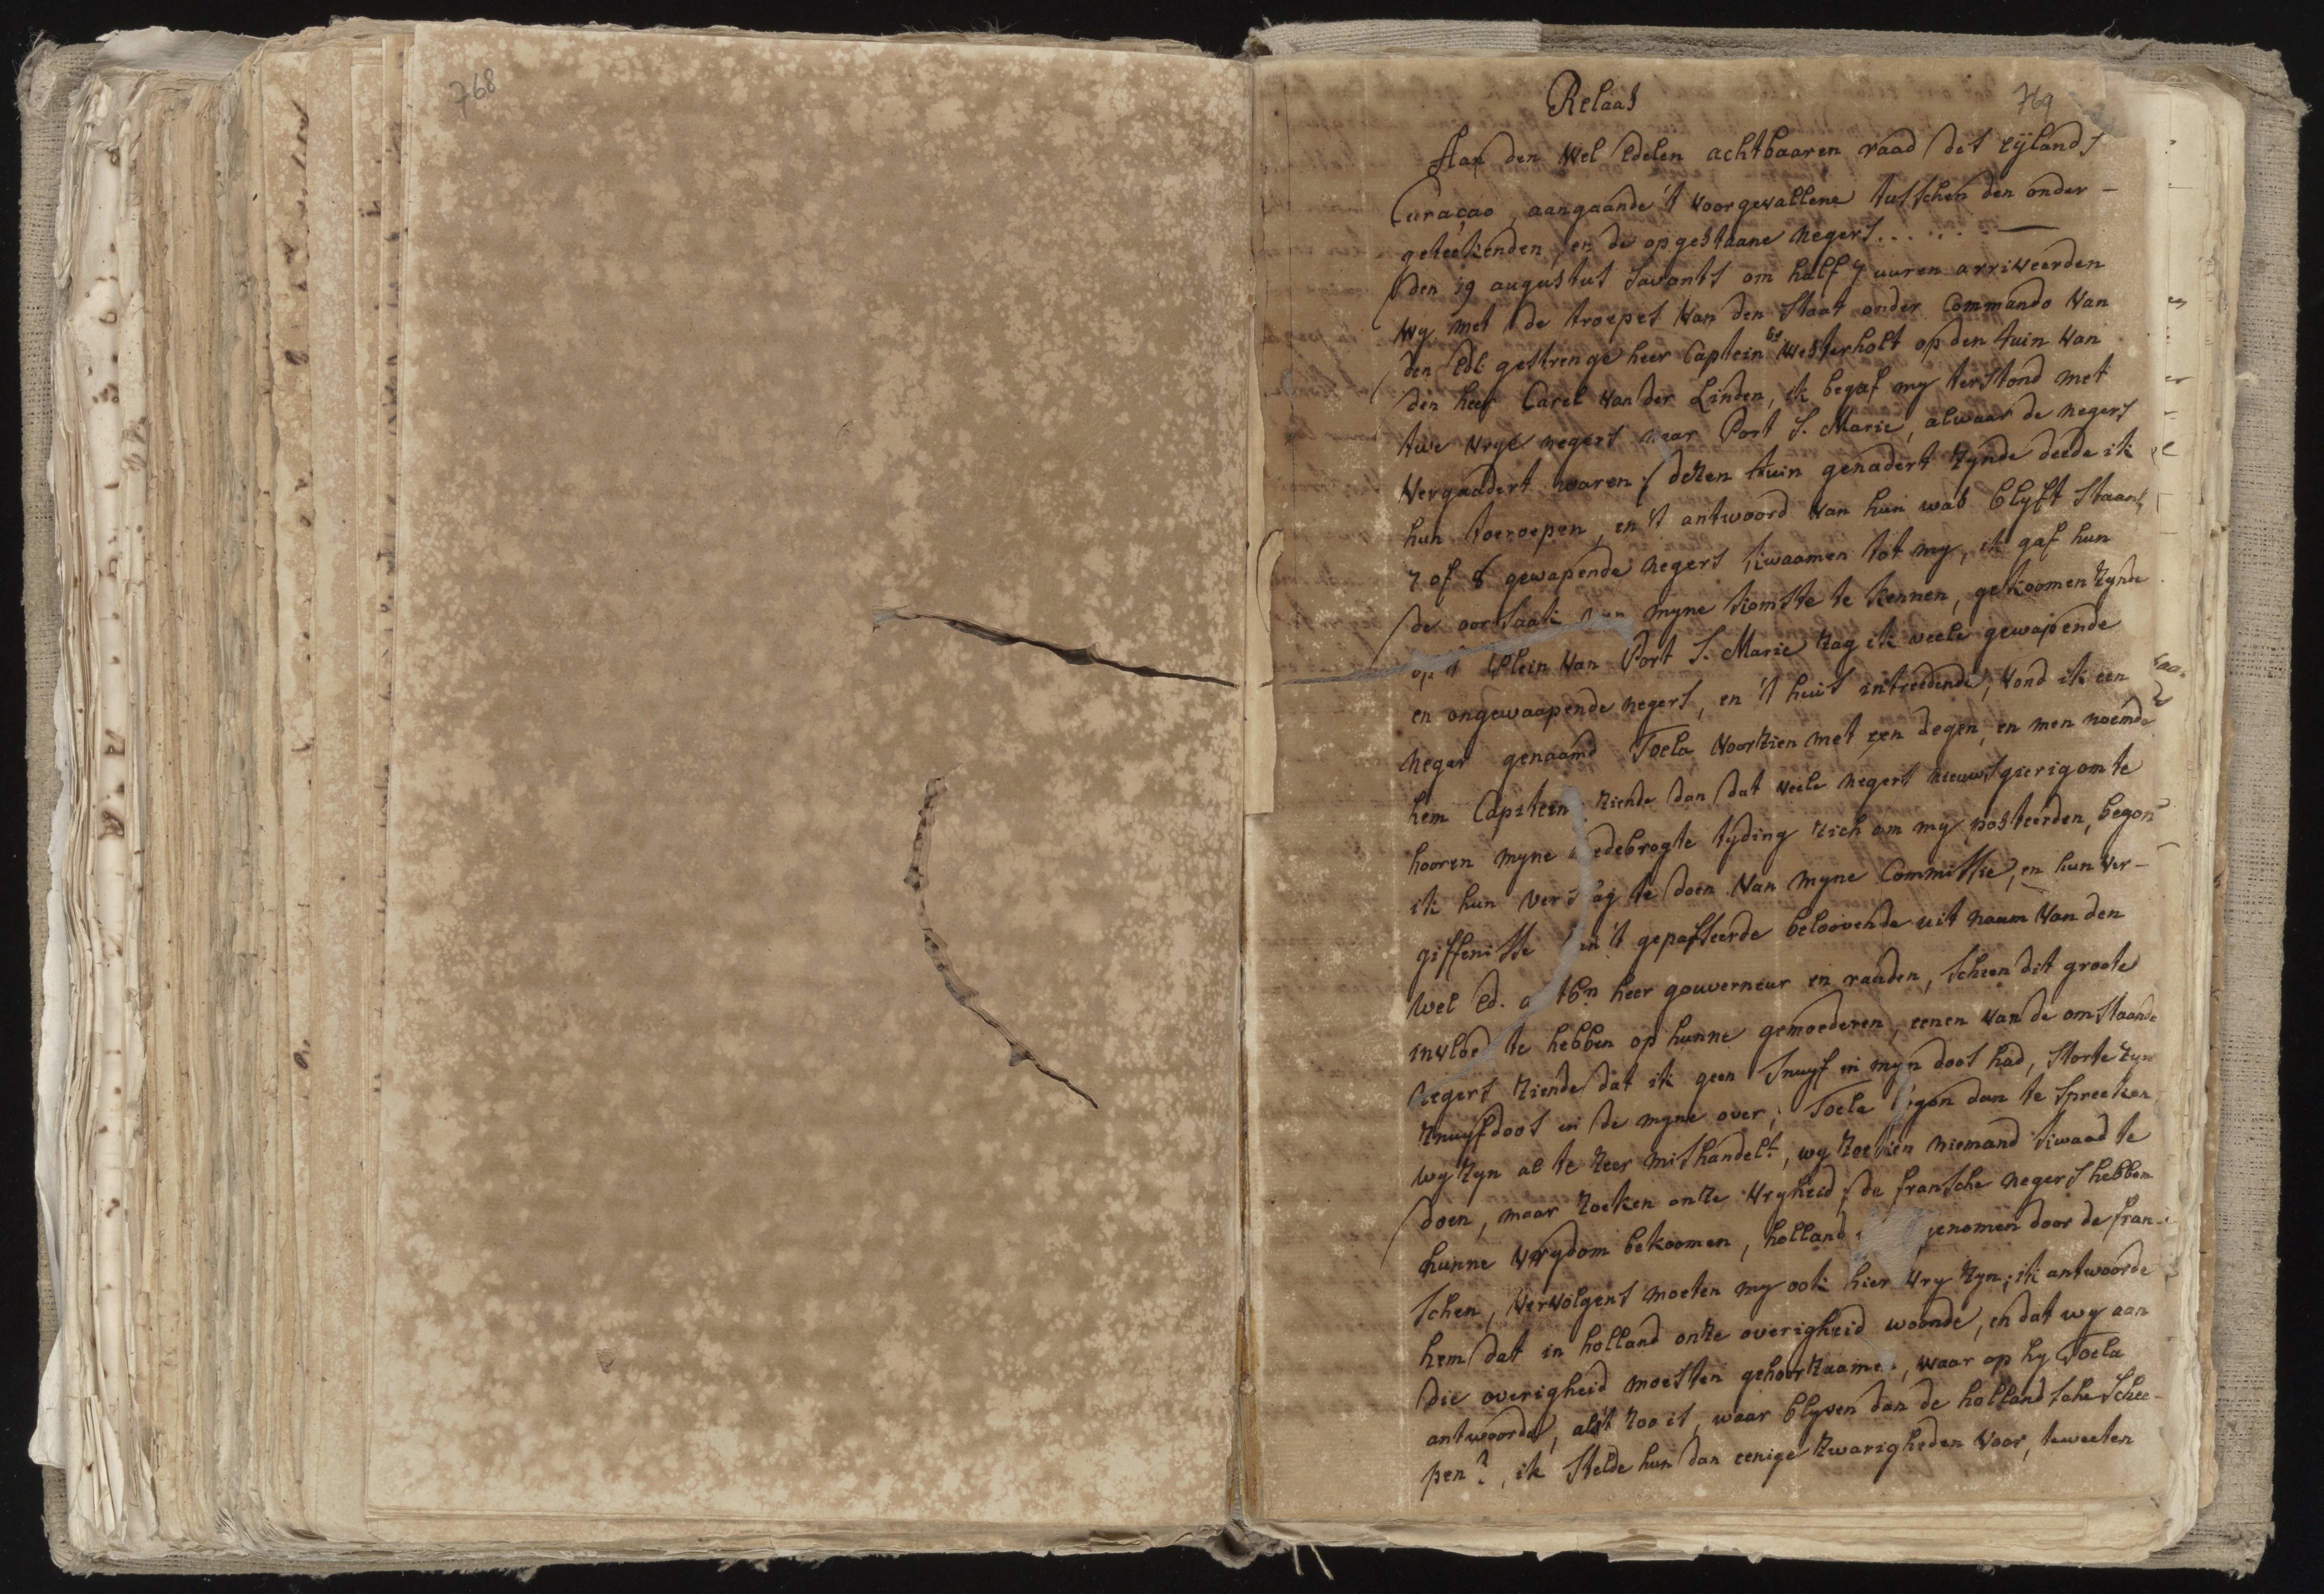 768
Relaas
769
Aan den Wel Edelen achtbaaren raad des eylands
Curaçao, aangaande 't voorgevallene tusschen den onder-
geteekenden, en de opgestaane negers.....
den 19 augustus savonts om half 7 uuren arriveerden
wy met de troepes van den Staat onder Commando van
den Edl: gestrenge heer Captein Westerholt op den tuin van
den heer Carel van der Linden, ik begaf my terstond met
twe vrye negers naar Port S. Marie, alwaar de negers
vergaadert waren; dezen tuin genadert zynde deede ik
hun toeroepen, en 't antwoord van hun was blyft staan,
7 of 8 gewapende negers kwaamen tot my, ik gaf hun
de oorsaak van myne komste te kennen, gekoomen zynde
op 't plein van Port S. Marie zag ik veele gewapende
en ongewaapende negers, en 't huis intreedende, vond ik een
neger genaamd Toela voorzien met een degen, en men noemde
hem Capitein; ziende dan dat veele negers nieuwsgierig om te
hooren myne medebrogte tyding zich om my posteerden, begon
ik hun verslag te doen van myne Commissie, en hun ver-
giffenisse van 't gepasseerde beloovende uit naam van den
Wel Ed. achtbn heer gouverneur en raaden, scheen dit groote
invloed te hebben op hunne gemoederen, eenen van de omstaande
negers ziende dat ik geen snuyf in myn doos had, storte zyn
snuyfdoos in de myne over; Toela begon dan te spreeken
wy zyn al te zeer mishandelt, wy zoeken niemand kwaad te
doen, maar zoeken onze vryheid, de fransche negers hebben
hunne vrydom bekoomen, holland genomen door de fran-
schen, vervolgens moeten wy ook hier vry zyn; ik antwoorde
hem dat in holland onze overigheid woonde, en dat wy aan
die overigheid moesten gehoorzaamen, waar op hy Toela
antwoorde, als 't zoo is, waar blyven dan de hollandsche schee-
pen?, ik stelde hun dan eenige zwarigheden voor, teweeten